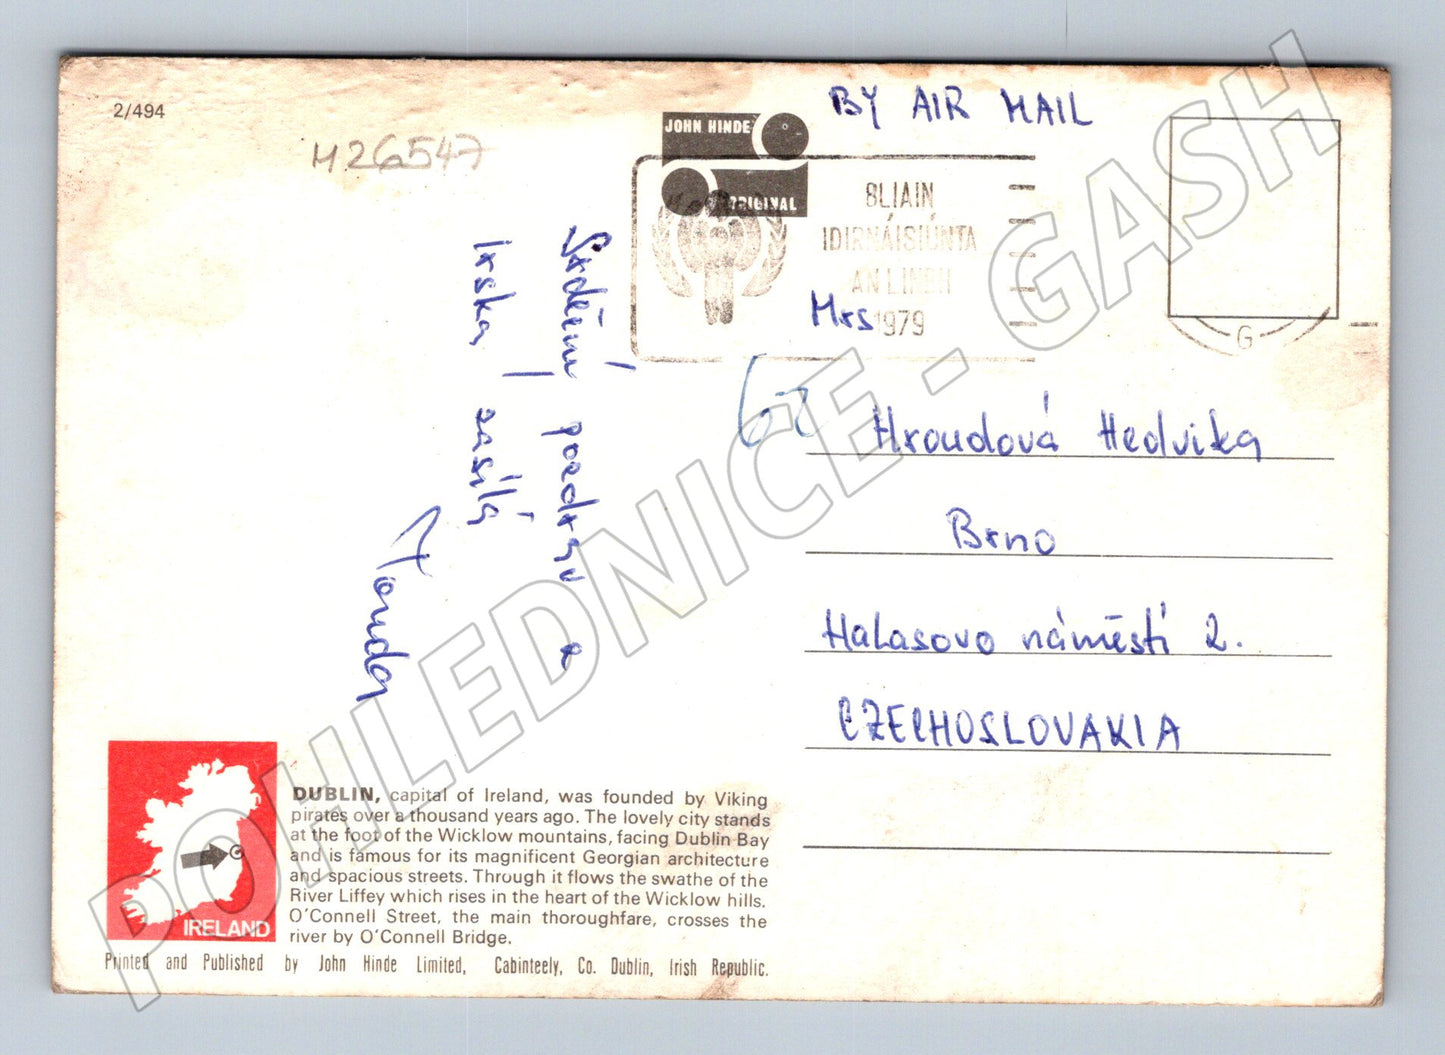 2/494
H26547
BY AIR MAIL
JOHN HINDE
ORIGINAL
BLIAIN
IDIRNÁISIÚNTA
AN LINBH
1979
G
Mrs
Hroudová Hedvika
Brno
Halasovo náměstí 2.
CZECHOSLOVAKIA
Srdečný pozdrav z
Irska zasílá
IRELAND
DUBLIN, capital of Ireland, was founded by Viking
pirates over a thousand years ago. The lovely city stands
at the foot of the Wicklow mountains, facing Dublin Bay
and is famous for its magnificent Georgian architecture
and spacious streets. Through it flows the swathe of the
River Liffey which rises in the heart of the Wicklow hills.
O'Connell Street, the main thoroughfare, crosses the
river by O'Connell Bridge.
Printed and Published by John Hinde Limited, Cabinteely, Co. Dublin, Irish Republic.
POHLEDNICE - GASH